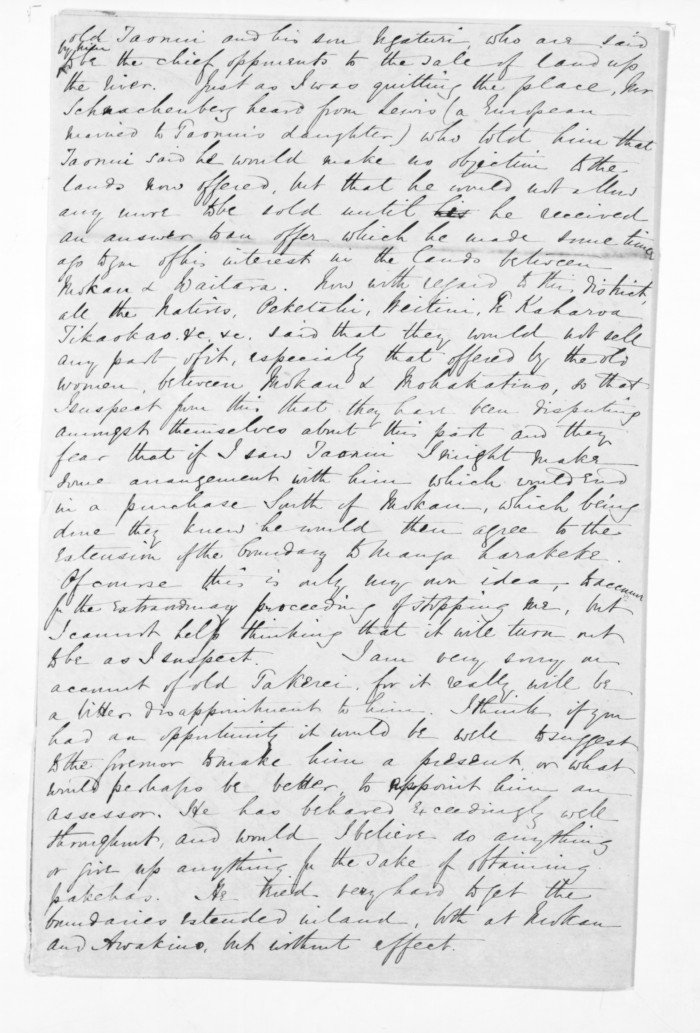 old Taonui and his son Ngaturi, who are said
by him
to be the chief opponents to the sale of land up
the river. Just as I was quitting the place, Mr
Schnachenberg heard from Lewis (a European
married to Taonui's daughter) who told him that
Taonui said he would make no objection to the
lands now offered, but that he would not allow
any more to be sold until his he received
an answer to an offer which he made some time
ago to you of his interest in the lands between
Mokau & Waitara. Now with regard to this district,
all the Natives, Peketahi, Weitini, Te Kaharoa
Tikaokao. &c. &c. said that they would not sell
any part of it, especially that offered by the old
women, between Mokau & Mohakatino, so that
I suspect from this that they have been disputing
amongst themselves about this part and they
fear that if I saw Taonui I might make
some arrangement with him which would end
in a purchase South of Mokau, which being
done they knew he would then agree to the
extension of the boundary to Manga harakeke.
Of course this is only my own idea, to account
for the extraordinary proceeding of stopping me, but
I cannot help thinking that it will turn out
to be as I suspect. I am very sorry on
account of old Takerei, for it really will be
a bitter disappointment to him. I think if you
had an opportunity it would be well to suggest
to the Governor to make him a present or what
would perhaps be better, to appoint him an
assessor. He has behaved exceedingly well
throughout, and would I believe do anything
or give up anything for the sake of obtaining
pakehas. He tried very hard to get the
boundaries extended inland, both at Mokau
and Awakino, but without effect.